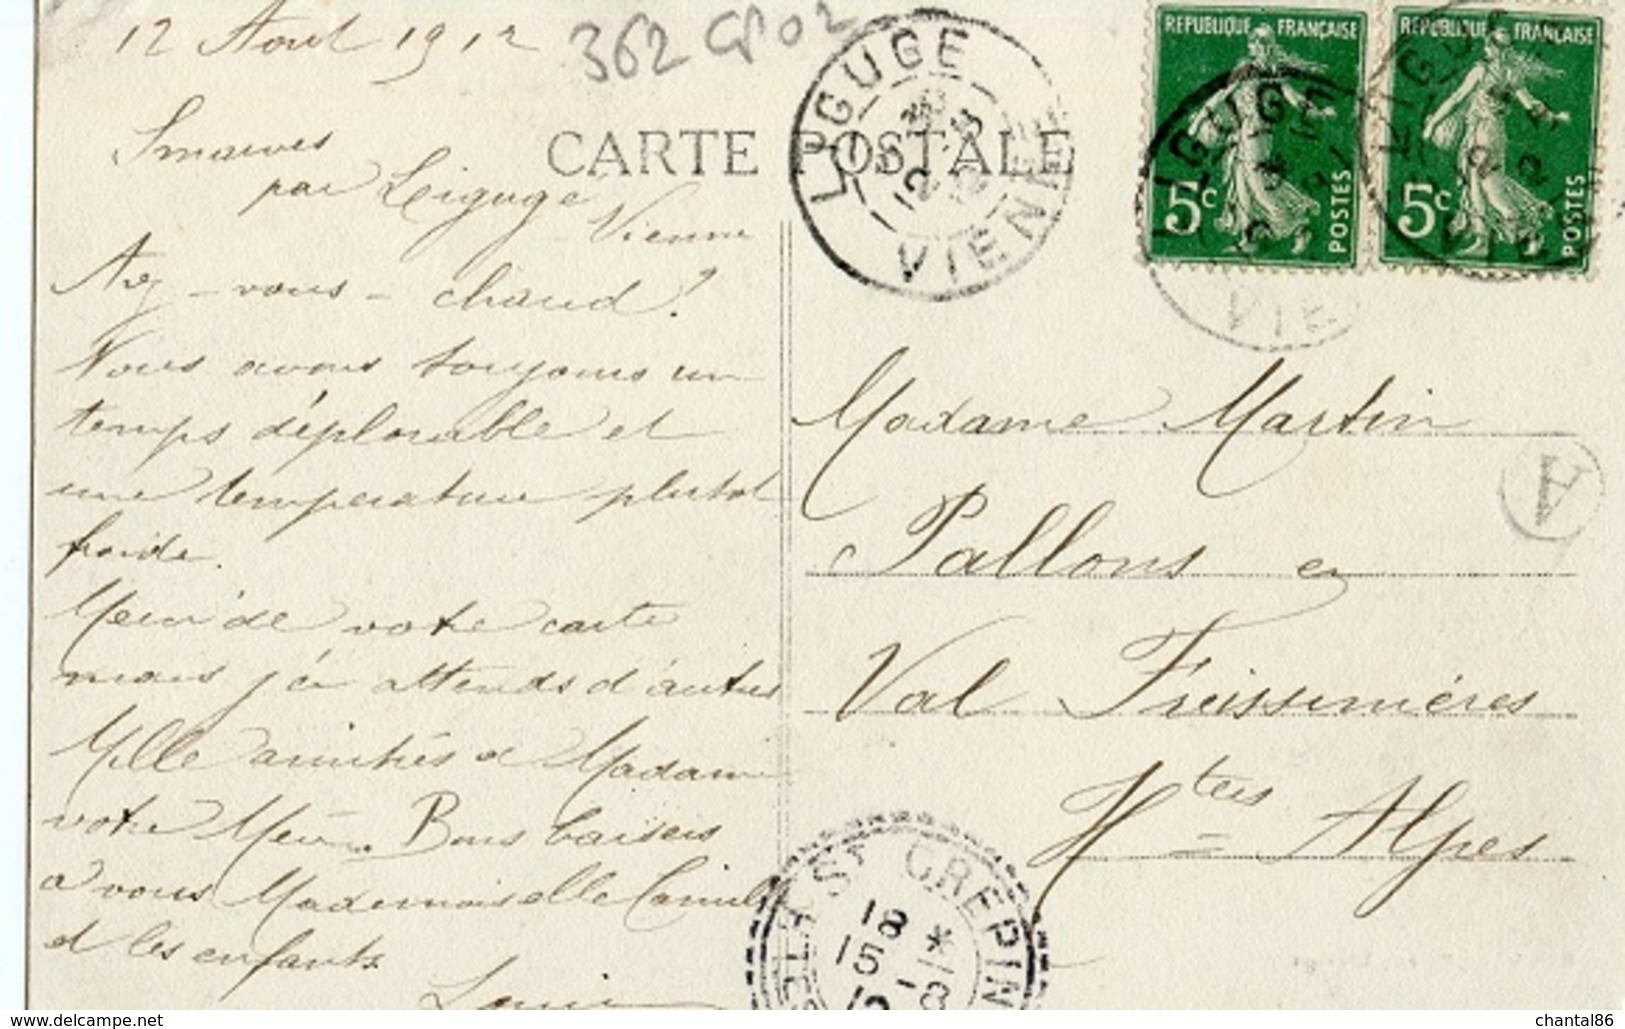 12 Aout 1912
362 CP 02
Smarves
par Leiguge
Vienne
CARTE POSTALE
LIGUGE
VIENNE
REPUBLIQUE FRANÇAISE
5c
POSTES
REPUBLIQUE FRANÇAISE
5c
POSTES
LIGUGE
VIE
Avez-vous-chaud?
Nous avons toujours un
temps déplorable et
une temperature plutot
froide.
Merci de votre carte
mais j'en attends d'autres
Mille amitiés à Madame
votre Mère. Bons baisers
a vous Mademoiselle Camille
et les enfants.
Louise
Madame Martin
Pallons en
Val Freissinières
Htes Alpes
A
ST CREPIN
18 *
15 -8
12
www.delcampe.net
chantal86